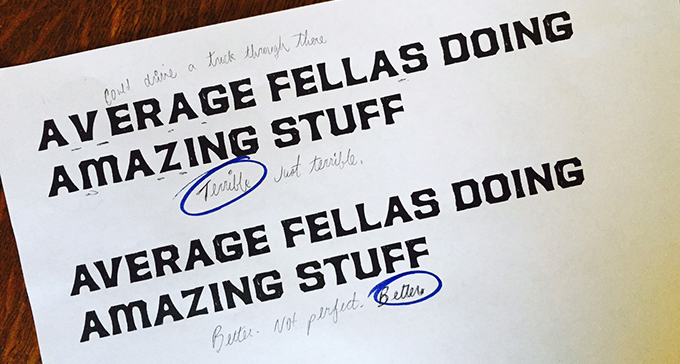 Could drive a truck through there
AVERAGE FELLAS DOING
AMAZING STUFF
Terrible. Just terrible.
AVERAGE FELLAS DOING
AMAZING STUFF
Better. Not perfect. Better.